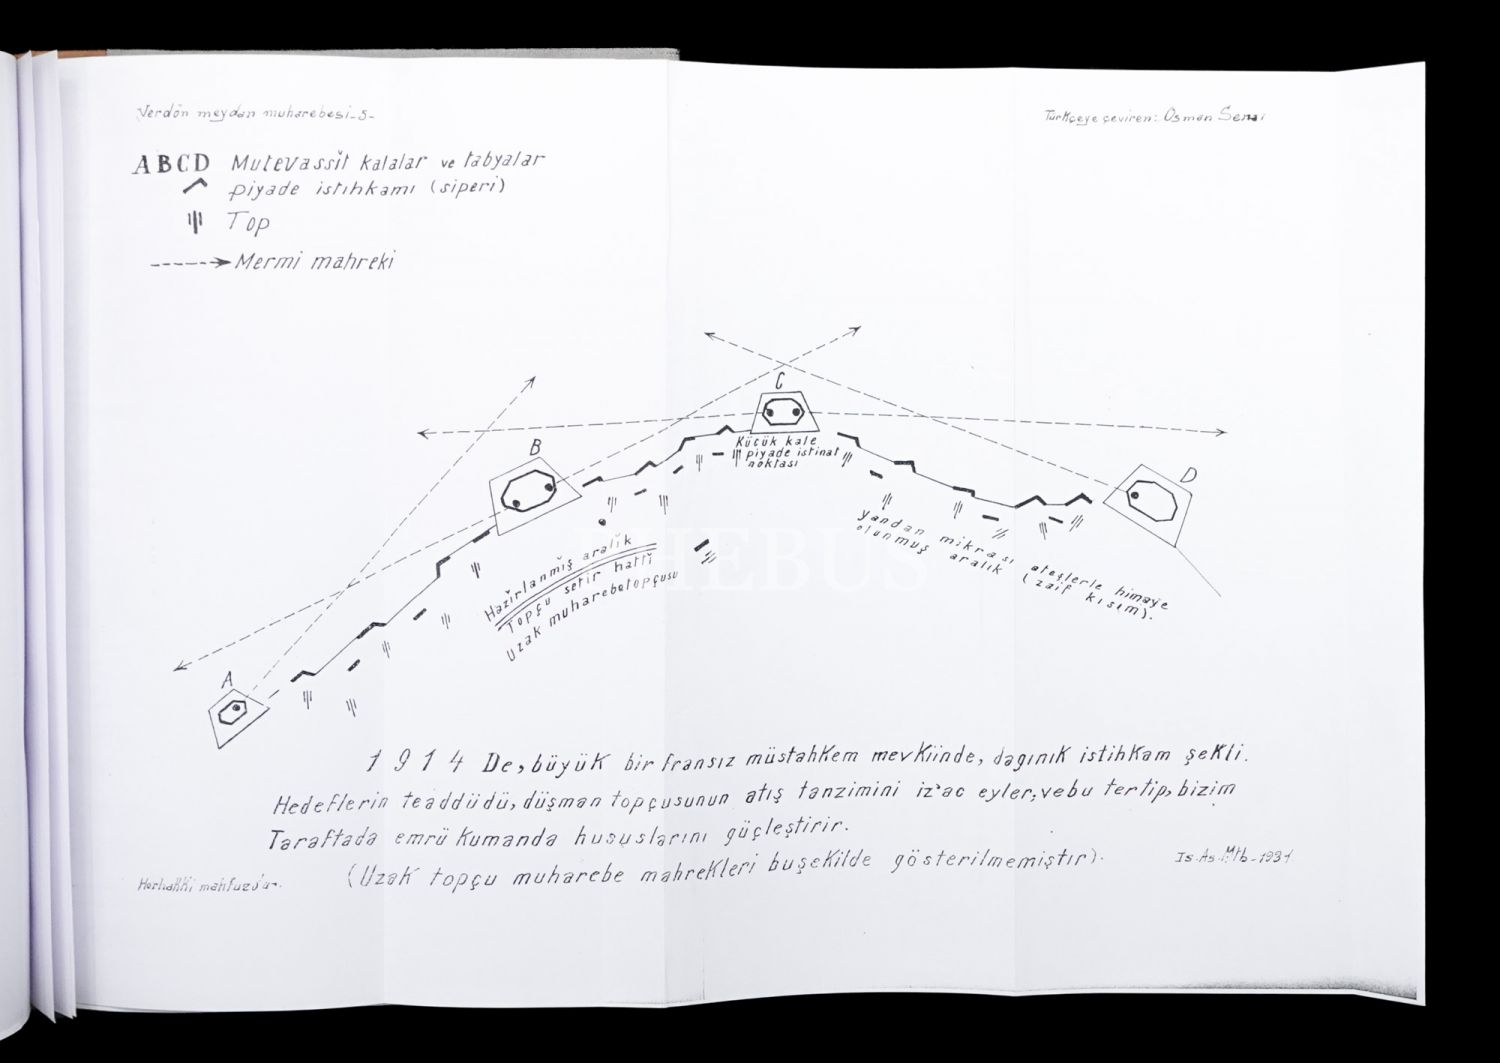 Verdön meydan muharebesi-5-
Türkçeye çeviren: Osman Senai
ABCD Mutevassıt kalalar ve tabyalar
piyade istihkamı (siperi)
Top
Mermi mahreki
C
B
D
A
Küçük kale
piyade istinat
noktası
Hazırlanmış aralık
Topçu setir hattı
Uzak muharebe topçusu
yandan mikrası ateşlerle himaye
olunmuş aralık (zaif kısım).
PHEBUS
1914 De, büyük bir fransız müstahkem mevkiinde, dagınık istihkam şekli.
Hedeflerin teaddüdü, düşman topçusunun atış tanzimini iz'ac eyler, vebu tertip, bizim
Taraftada emrü kumanda hususlarını güçleştirir.
(Uzak topçu muharebe mahrekleri buşekilde gösterilmemiştir).
Is. As. Mtb-1931
Herhakki mahfuzdur.